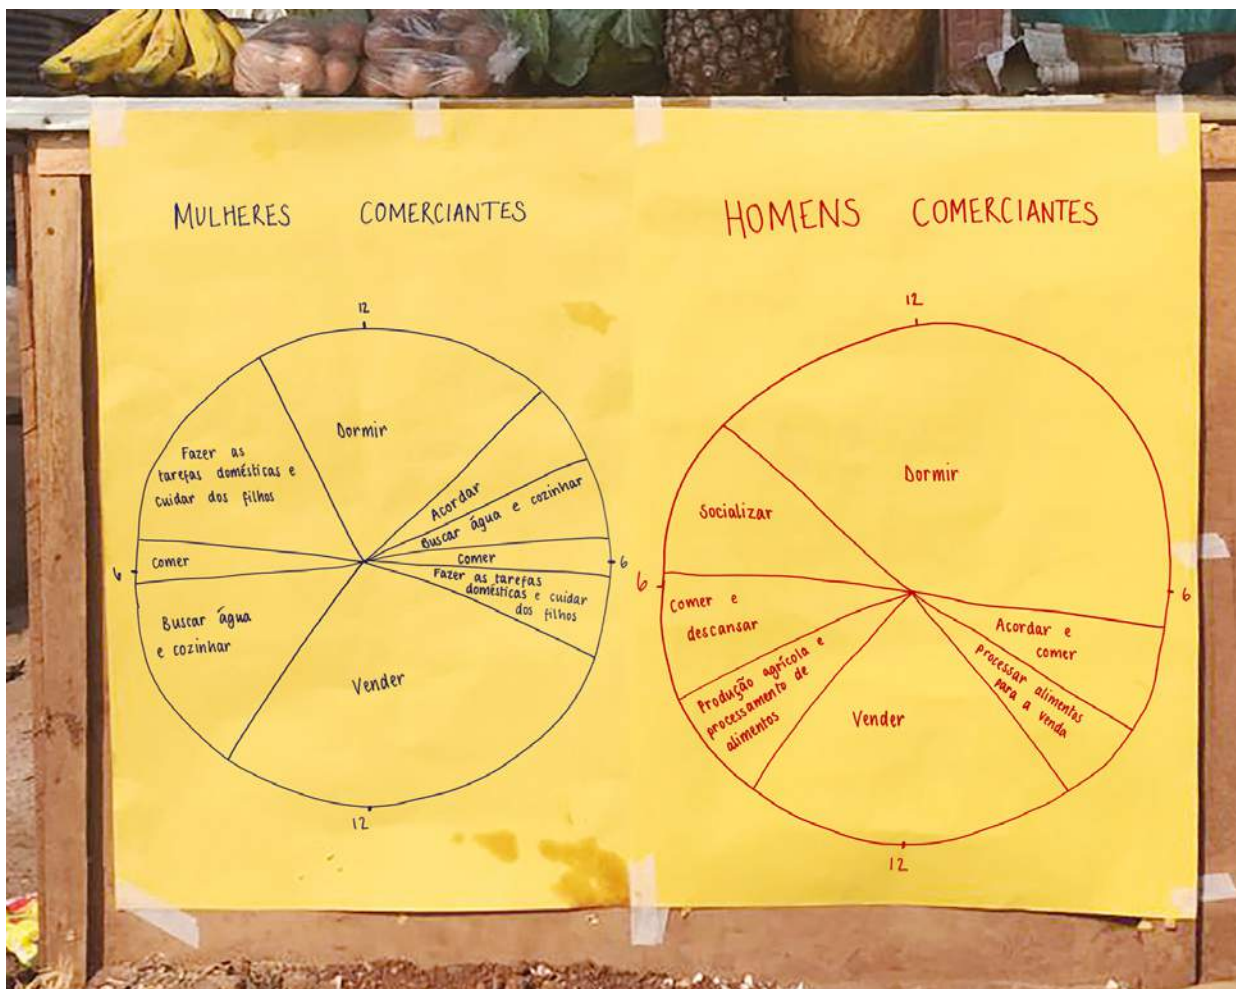 MULHERES COMERCIANTES
12
Dormir
Acordar
Buscar água e cozinhar
Comer
6
Fazer as tarefas
domésticas e cuidar
dos filhos
Vender
12
Buscar água
e cozinhar
6
Comer
Fazer as
tarefas domésticas e
cuidar dos filhos
HOMENS COMERCIANTES
12
Dormir
6
Acordar e
comer
processar alimentos
para a venda
Vender
12
Produção agrícola e
processamento de
alimentos
Comer e
descansar
6
Socializar